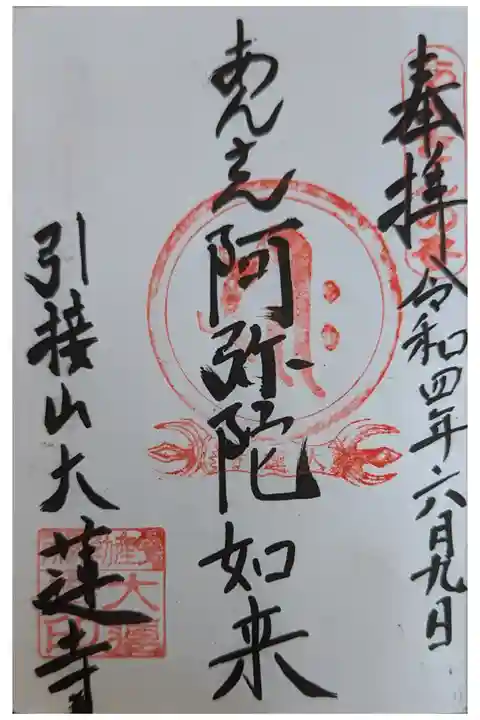 奉拝 令和四年六月九日
あんさん 阿弥陀如来
引接山大蓮寺